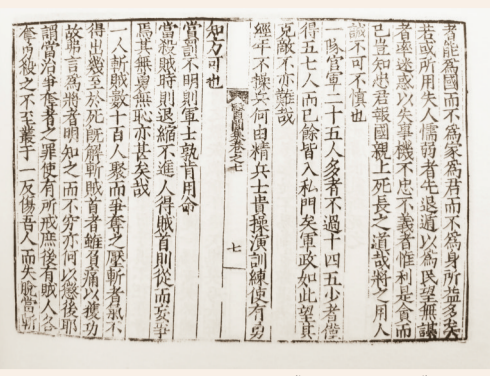 者能為國而不為家為君而不為身所益多矣
若或所用失人懦弱者先退遁以為民望無謀
者率迷惑以失事機不忠不義者惟利是食而
己豈知忠君報國親上死長之道哉將之用人
誠不可不慎也
一隊官軍二十五人多者不過十四五少者僅
得五七人而已餘皆入私門矣軍政如此望其
克敵不亦難哉
經年不操兵何由精兵士貴操演訓練使有勇
卷之七
七
知方可也
賞罰不明則軍士孰肯用命
當殺賊時則退縮不進人得賊首則從而妄爭
焉其無勇無恥亦甚矣哉
一人斬賊數十百人聚而爭奪之壓斬者氣不
得出幾至於死旣解斬賊首者雖負痛以獲功
故弗言為將者明知之而不窮亦何以懲後耶
謂當治爭奪者之罪使有所戒庶後有賊人各
奮勇殺之不至叢于一反傷吾人而失脫當斬